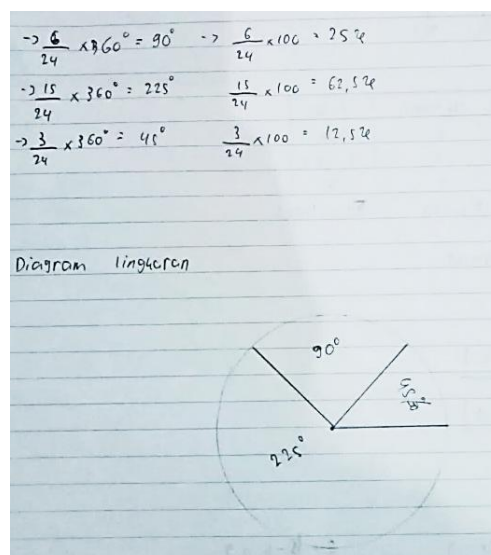 -> 6/24 x 360° = 90° -> 6/24 x 100 = 25%
-> 15/24 x 360° = 225° 15/24 x 100 = 62,5%
-> 3/24 x 360° = 45° 3/24 x 100 = 12,5%
Diagram lingkaran
90°
45°
225°